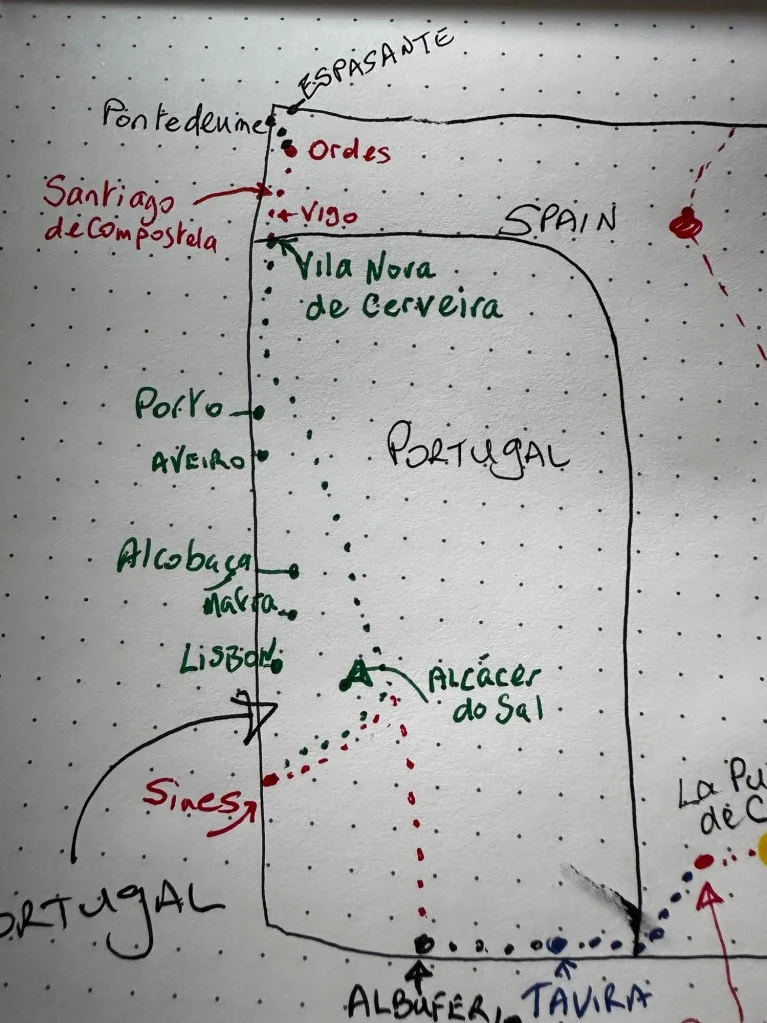 ESPASANTE
Pontedeume
Ordes
Santiago
de Compostela
Vigo
SPAIN
Vila Nova
de Cerveira
Porto
PORTUGAL
AVEIRO
Alcobaça
Mafra
LISBON
ALCÁCER
do Sal
Sines
La Pu
de C
ORTUGAL
ALBUFER
TAVIRA